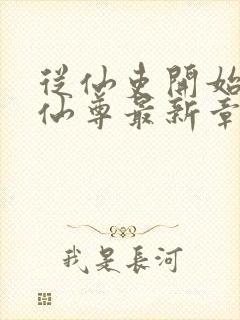 從仙吏開始
仙尊最新章
我是長河